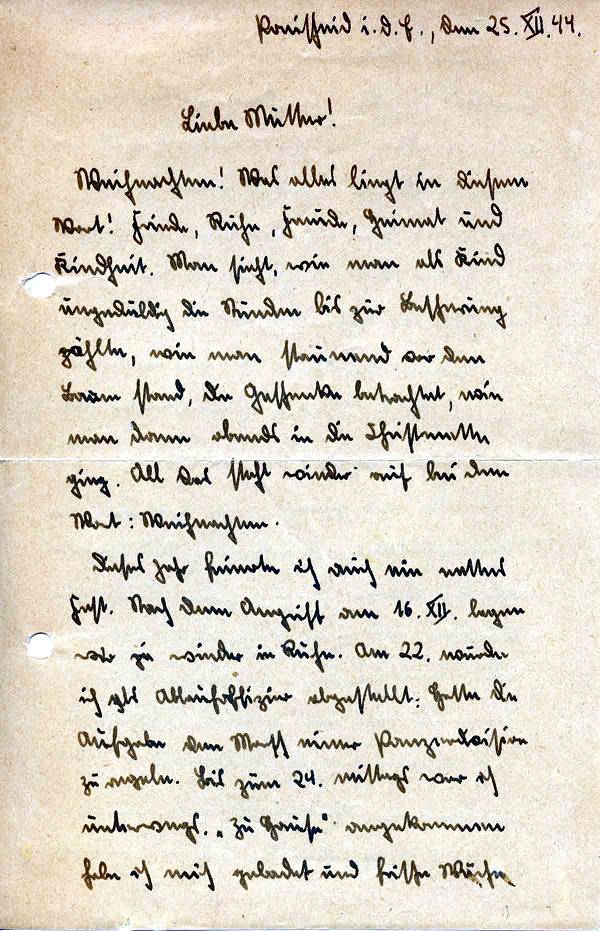 i. d. E., den 25. XII. 44.
Liebe Mutter!
Weihnachten! Was alles liegt in diesem
Wort! Friede, Ruhe, Freude, Heimat und
Kindheit. Man sieht, wie man als Kind
ungeduldig die Stunden bis zur Bescherung
zählte, wie man staunend vor dem
Baum stand, die Geschenke betrachtet, wie
man dann abends in die Christmette
ging. All das steht wieder auf bei dem
Wort: Weihnachten.
Dieses Jahr feierte ich auch ein nettes
Fest. Nach dem Angriff am 16. XII. liegen
wir ja wieder in Ruhe. Am 22. wurde
ich als Ablaufoffizier abgestellt: Hatte die
Aufgabe den Marsch einer Panzerdivision
zu regeln. Bis zum 24. mittags war ich
unterwegs. „Zu Hause" angekommen
habe ich mich gebadet und frische Wäsche